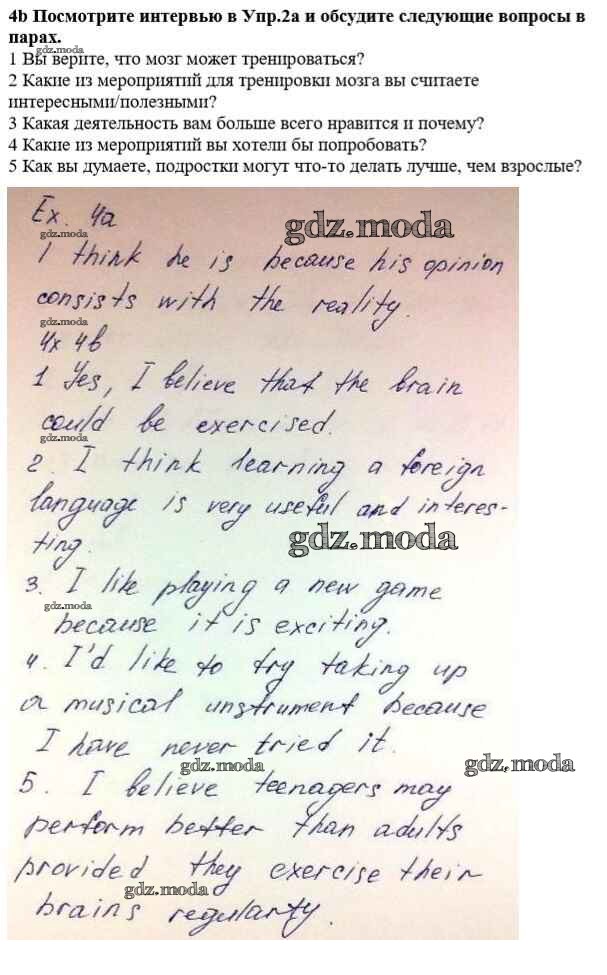 4b Посмотрите интервью в Упр.2а и обсудите следующие вопросы в
парах.
gdz.moda
1 Вы верите, что мозг может тренироваться?
2 Какие из мероприятий для тренировки мозга вы считаете
интересными/полезными?
3 Какая деятельность вам больше всего нравится и почему?
4 Какие из мероприятий вы хотели бы попробовать?
5 Как вы думаете, подростки могут что-то делать лучше, чем взрослые?
Ex. 4a
gdz.moda
gdz.moda
I think he is because his opinion
consists with the reality.
gdz.moda
4x 4b
1 Yes, I believe that the brain
could be exercised.
gdz.moda
2. I think learning a foreign
language is very useful and interes-
ting.
gdz.moda
3. I like playing a new game
gdz.moda
because it is exciting.
4. I'd like to try taking up
a musical unstrument because
I have never tried it.
gdz.moda
gdz.moda
5. I believe teenagers may
perform better than adults
provided they exercise their
gdz.moda
brains regularty.